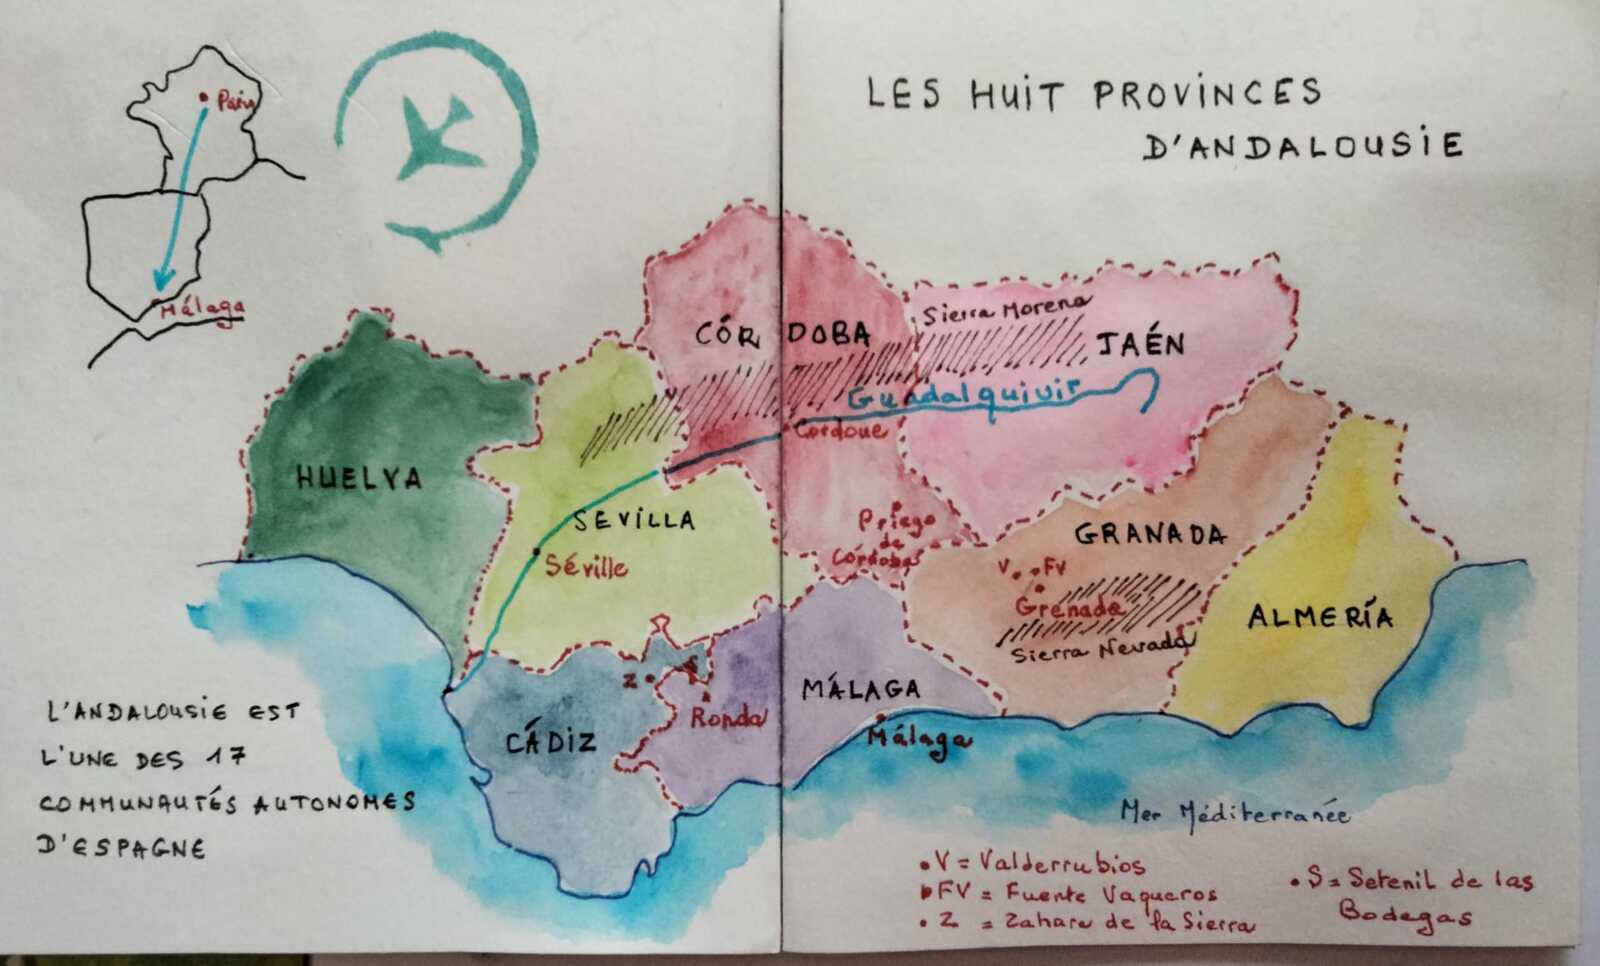 LES HUIT PROVINCES
D'ANDALOUSIE
Paris
Málaga
CÓRDOBA
Sierra Morena
JAÉN
Guadalquivir
Cordoue
HUELVA
SEVILLA
Séville
Priego
de
Córdoba
GRANADA
V
FV
Grenade
Sierra Nevada
ALMERÍA
Z
S
Ronda
MÁLAGA
Málaga
CÁDIZ
L'ANDALOUSIE EST
L'UNE DES 17
COMMUNAUTÉS AUTONOMES
D'ESPAGNE
Mer Méditerranée
V = Valderrubios
FV = Fuente Vaqueros
Z = Zahara de la Sierra
S = Setenil de las
Bodegas